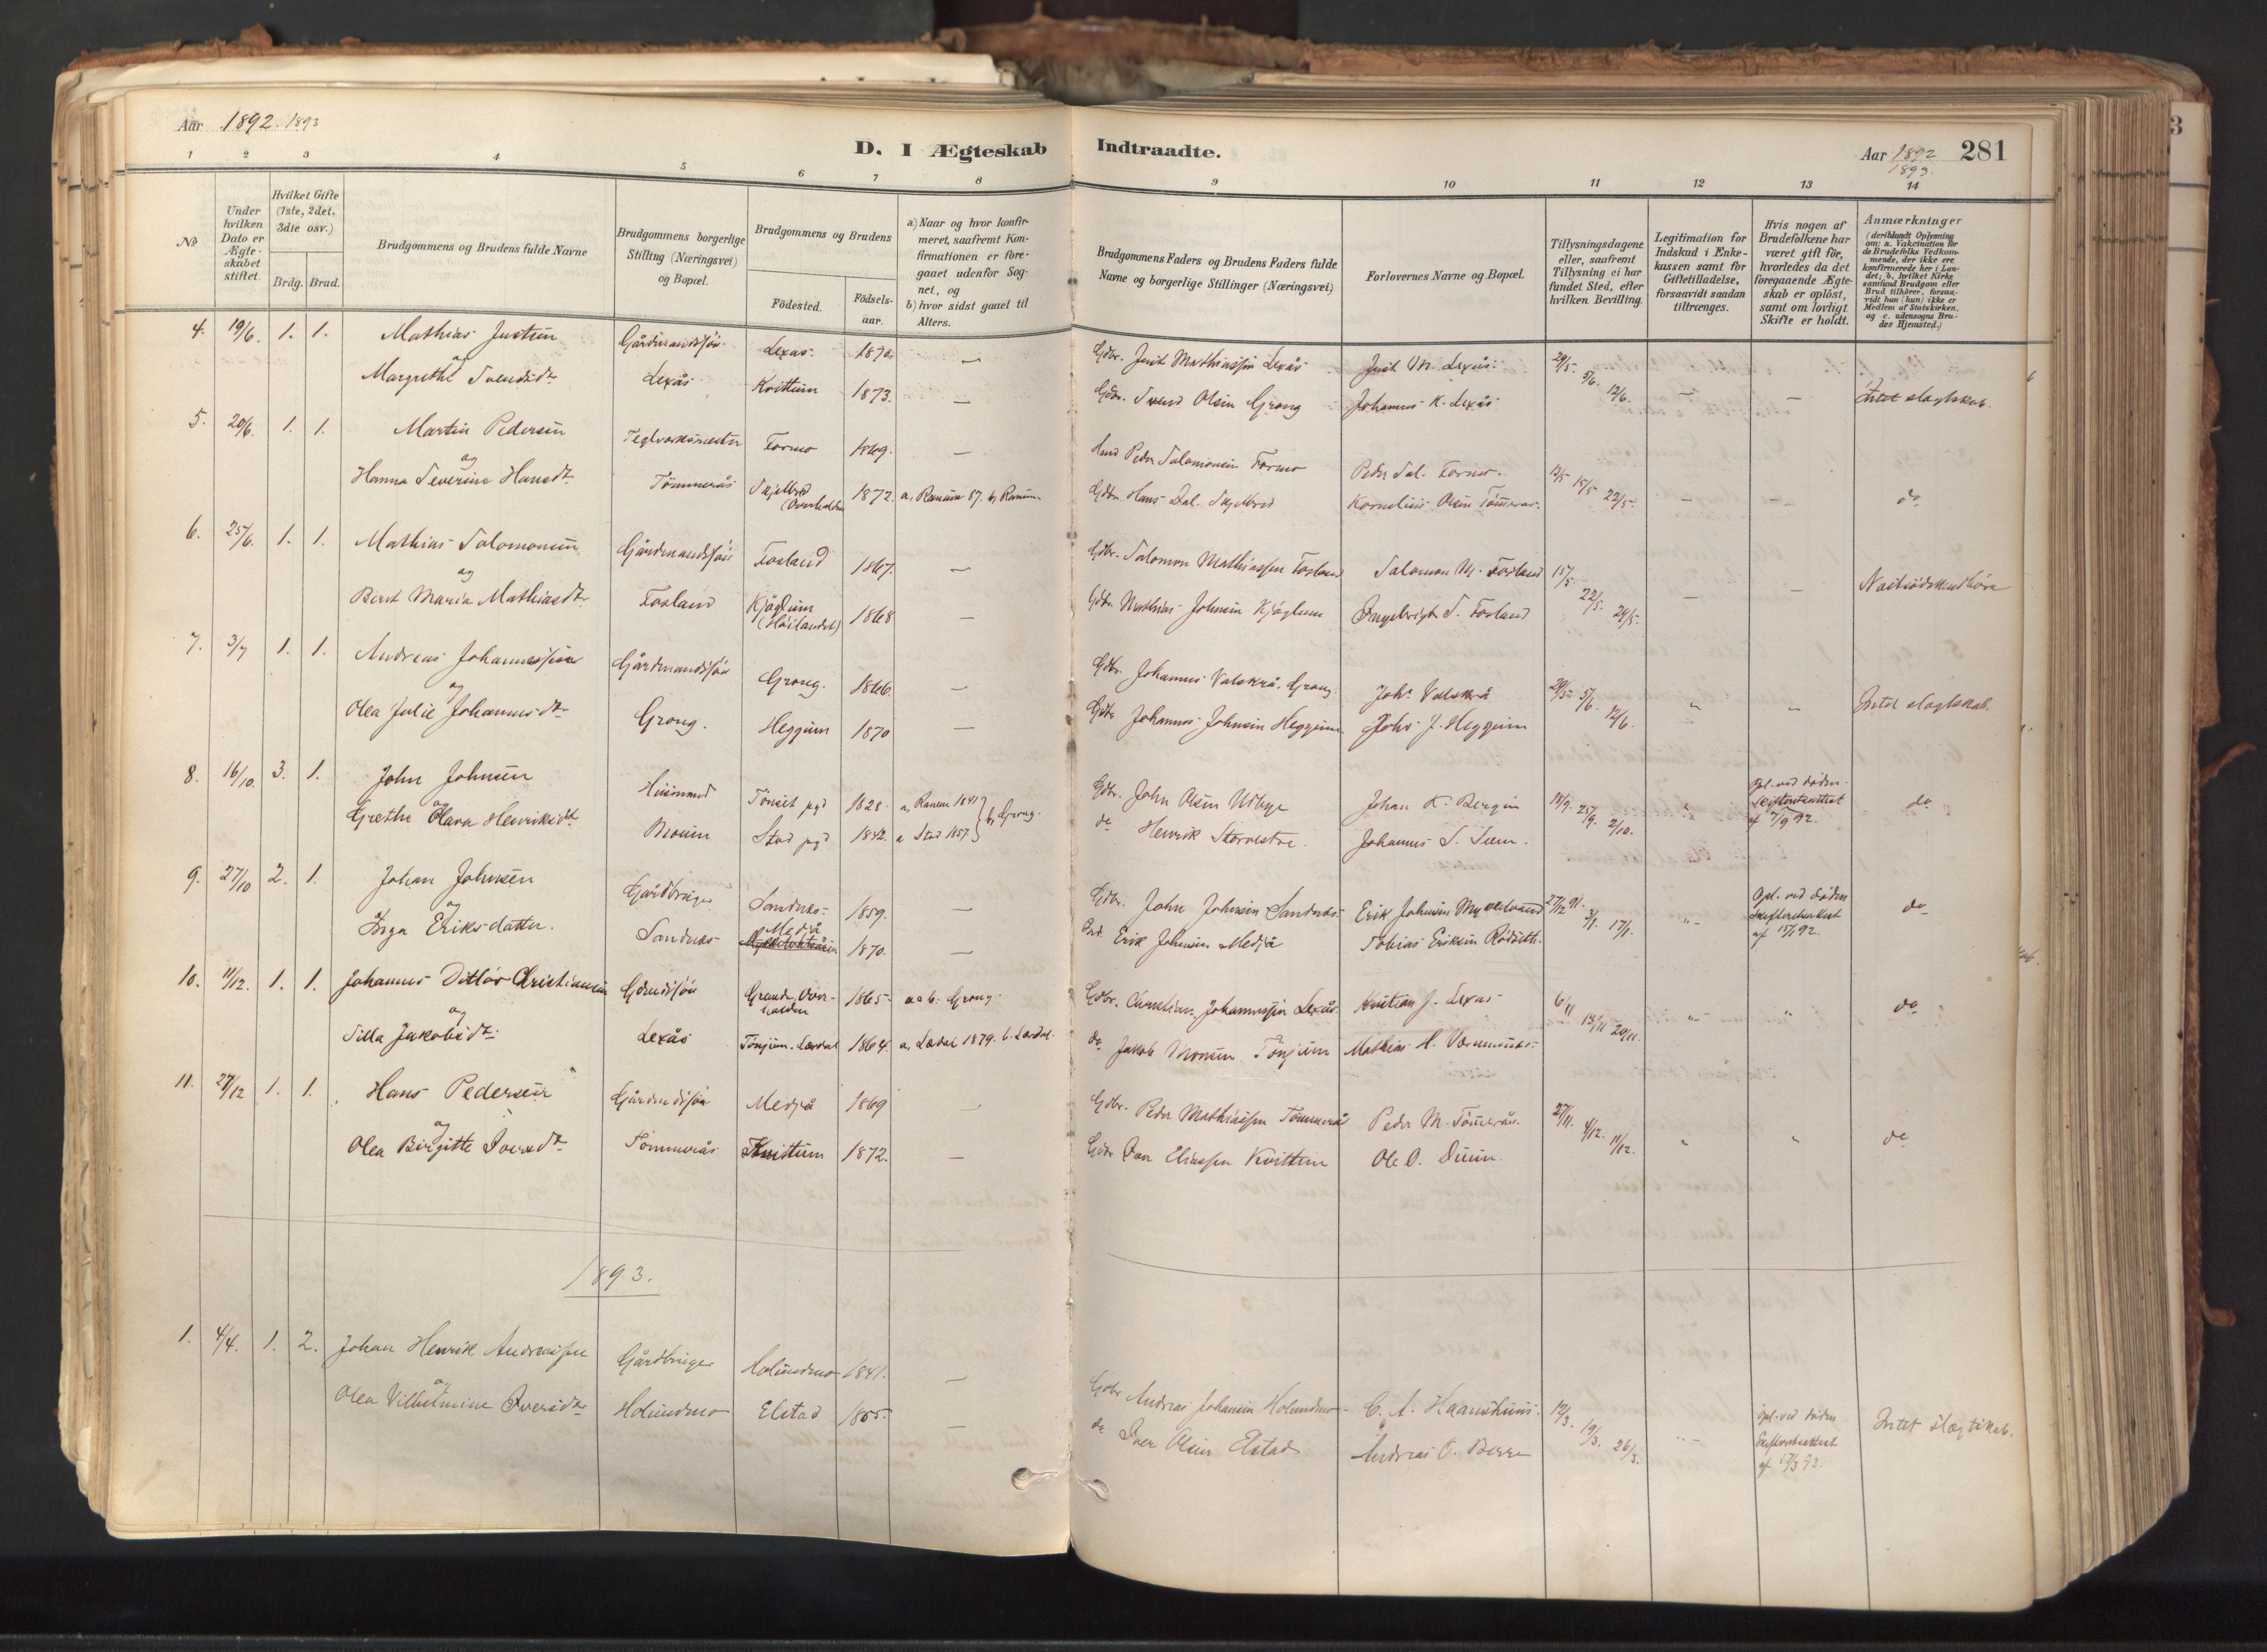 Aar 1892. 1893
D. I Ægteskab Indtraadte.
Aar 1892 1893. 281
1 2 3 4 5 6 7 8 9 10 11 12 13 14
No
Under hvilken Dato er Ægteskabet stiftet.
Hvilket Gifte (1ste, 2det, 3die osv.)
Brdg. Brud.
Brudgommens og Brudens fulde Navne
Brudgommens borgerlige Stilling (Næringsvei) og Bopæl.
Brudgommens og Brudens
Fødested. Fødselsaar.
a) Naar og hvor konfirmeret, saafremt Konfirmationen er foregaaet udenfor Sognet, og
b) hvor sidst gaaet til Alters.
Brudgommens Faders og Brudens Faders fulde Navne og borgerlige Stillinger (Næringsvei)
Forlovernes Navne og Bopæl.
Tillysningsdagene eller, saafremt Tillysning ei har fundet Sted, efter hvilken Bevilling.
Legitimation for Indskud i Enkekassen samt for Giftetilladelse, forsaavidt saadan tiltrænges.
Hvis nogen af Brudefolkene har været gift før, hvorledes da det foregaaende Ægteskab er opløst, samt om lovligt Skifte er holdt.
Anmærkninger (deriblandt Oplysning om: a. Vakcination for de Brudefolks Vedkommende, der ikke ere konfirmerede her i Landet; b. hvilket Kirkesamfund Brudgom eller Brud tilhører, forsaavidt han (hun) ikke er Medlem af Statskirken, og c. udensogns Brudes Hjemsted.)
4. 19/6. 1. 1. Mathias Justsen Gårdmandssøn Lexås 1870. — Gdbr. Just Mathiassen Lexås Just M. Lexås 29/5. 5/6. 12/6. — —
og
Margrethe Svendsdt. Lexås Kvittum 1873. — Gdbr. Svend Olsen Grong Johannes K. Lexås Intet slagtskab.
5. 20/6. 1. 1. Martin Pedersen Teglværksmester Formo 1869. — Peder Salomonsen Formo Peder Sal. Formo. 12/5 15/5 22/5.
og
Hanna Severine Hansdt. Tømmerås Skjelbred (Overhalden 1872. a. Ranum 87. b. Ranum. Gdbr. Hans Dal. Skjelbred Kornelius Olsen Tømmerås. do
6. 25/6. 1. 1. Mathias Salomonsen Gårdmandssøn Fosland 1867. — Gdbr. Salomon Mathiassen Fosland Salomon M. Fosland 15/5 22/5. 29/5. — —
og
Berit Maria Mathiasdt. Fosland Kjøglum (Høilandet) 1868 — Gdbr. Mathias Johnsen Kjøglum Ingebrigt S. Fosland
7. 3/7 1. 1. Andreas Johannessen Gårdmandssøn Grong. 1866. — Gdbr. Johannes Valskrå, Grong. Johs. Valskrå 29/5 5/6. 12/6. Intet slagtskab.
og
Olea Julie Johannesdt. Grong. Heggum 1870 — Gdbr. Johannes Johnsen Heggum. Johs. J. Heggum
8. 16/10. 3. 1. John Johnsen Husmand Tønset pgd 1828. a. Ranem 1841 } b. Grong. Gdbr. John Olsen Udbye Johan K. Bergin 18/9. 25/9. 2/10. Opl. ved døden. Skifteretsattest af 7/9 92. do
og
Grethe Olava Henriksdt. Stod pgd 1842. a Stod 1857. do Henrik Storvestre. Johannes S.
9. 27/10 2. 1. Johan Johnsen Gårdbruger Sandnes 1859. — Gdbr. John Johnsen Sandnes Erik Johnsen 27/12 91. 3/1. 17/1. Opl. ved døden Skifteretsattest af 15/7 92. do
og
Inga Eriksdatter. Sandnes Medjå 1870. — Erik Johnsen Medjå Tobias Eriksen
10. 11/12. 1. 1. Johannes Ditløv Christiansen Gdmdssøn Grande, Overhalden 1865 a & b. Grong. Gdbr. Christian Johannessen Lexås. Kristian J. Lexås 6/11 13/11 20/11. do
og
Silla Jakobsdt. Lexås Tønjum. Lærdal 1864. a. Lærdal 1879. b. Lærdal. do Jakob Monsen Tønjum Mathias H.
11. 27/12 1. 1. Hans Pedersen Gårdmdssøn Medjå 1869 — Gdbr. Peder Mathiassen Tømmerås Peder M. Tømmerås. 27/11. 4/12. 11/12. do
og
Olea Birgitte Iversdt. Tømmerås Kvittum 1872. — Gdbr Iver Eliassen Kvittum Ole O. Duun.
1893.
1. 4/4. 1. 2. Johan Henrik Andreassen Gårdbruger Holundmo 1841. — Gdbr Andreas Johansen Holundmo C. A. Haanshuus. 12/3. 19/3. 26/3. Opl. ved døden Skifteretsattest af 17/3 93. Intet slægtskab.
og
Olea Vilhelmine Iversdt. Holundmo Elstad 1855. — do Iver Olsen Elstad Andreas O. Berre